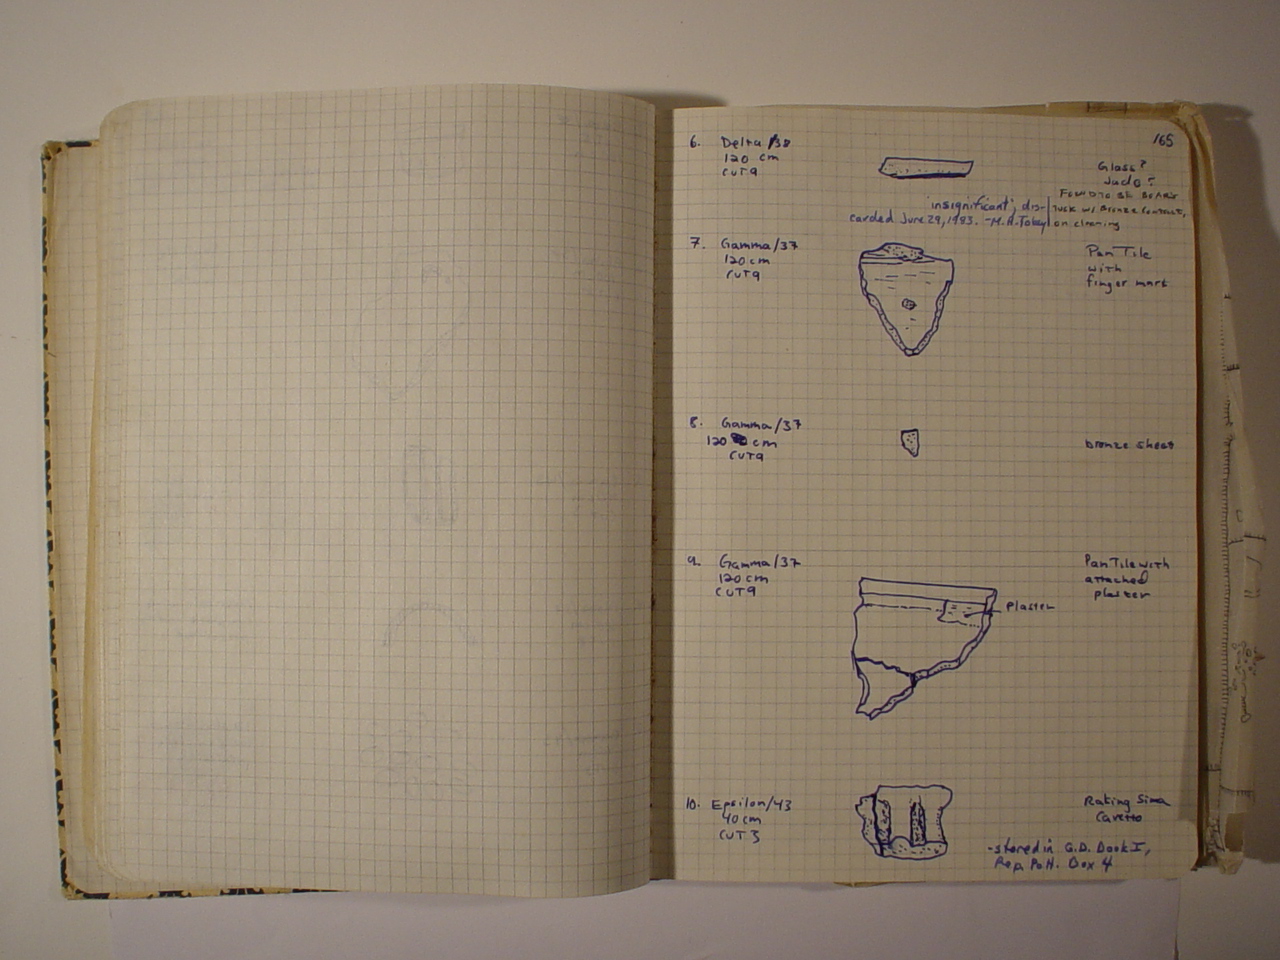 165
6. Delta/38
120 cm
CUT9
Glass?
Jade?
Found to be Boar's
Tusk w/ Bronze
on cleaning
"insignificant", dis-
carded June 29, 1983. -M.A.Tobey
7. Gamma/37
120 cm
CUT9
Pan Tile
with
finger mark
8. Gamma/37
120 cm
CUT9
bronze sheet
9. Gamma/37
120 cm
CUT9
Pan Tile with
attached
plaster
Plaster
10. Epsilon/43
40 cm
CUT 3
Raking Sima
Cavetto
-stored in G.D. Book I,
Rep. Pott. Box 4